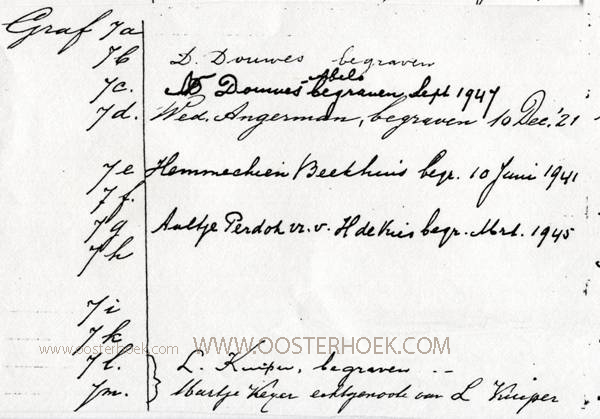 Graf 7a
7b D. Douwes begraven
Abels
7c. Douwes begraven, Sept 1947
7d. Wed. Angerman, begraven 10 Dec. '21
7e Hemmechien Beekhuis begr. 10 Juni 1941
7f.
7g Aaltje Perdok vr. v. H de Vries begr. Mrt. 1945
7h
7i
7k
www.oosterhoek.com WWW.OOSTERHOEK.COM
7l. L. Kuiper, begraven ..
7m. Martje Keyer echtgenoote van L Kuiper